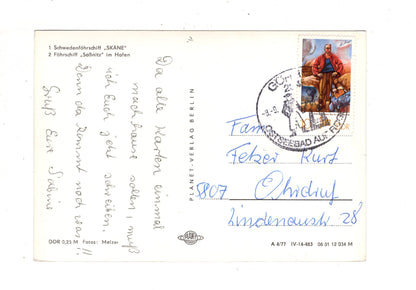 1 Schwedenfährschiff „SKÅNE"
2 Fährschiff „Saßnitz" im Hafen
Da alle Karten einmal
nachhause sollen, muß
ich Euch jetzt schreiben.
Denn da kommt noch was!!
Gruß Eure Sabine
DDR 0,25 M Fotos: Melzer
PLANET-VERLAG BERLIN
PLANET
A 4/77 IV-14-483 06 01 12 034 M
OSTSEEBAD AUF RÜGEN
DDR
Fam.
Fetzer Kurt
5807 Ohrdruf
Lindenaustr 28